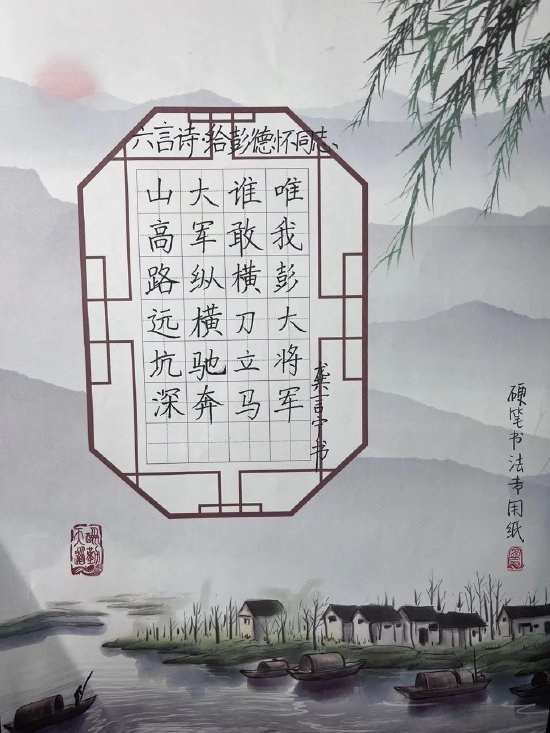 六言诗·给彭德怀同志、
山高路远坑深
大军纵横驰奔
谁敢横刀立马
唯我彭大将军
龚言宁书
硬笔书法专用纸
天道酬勤